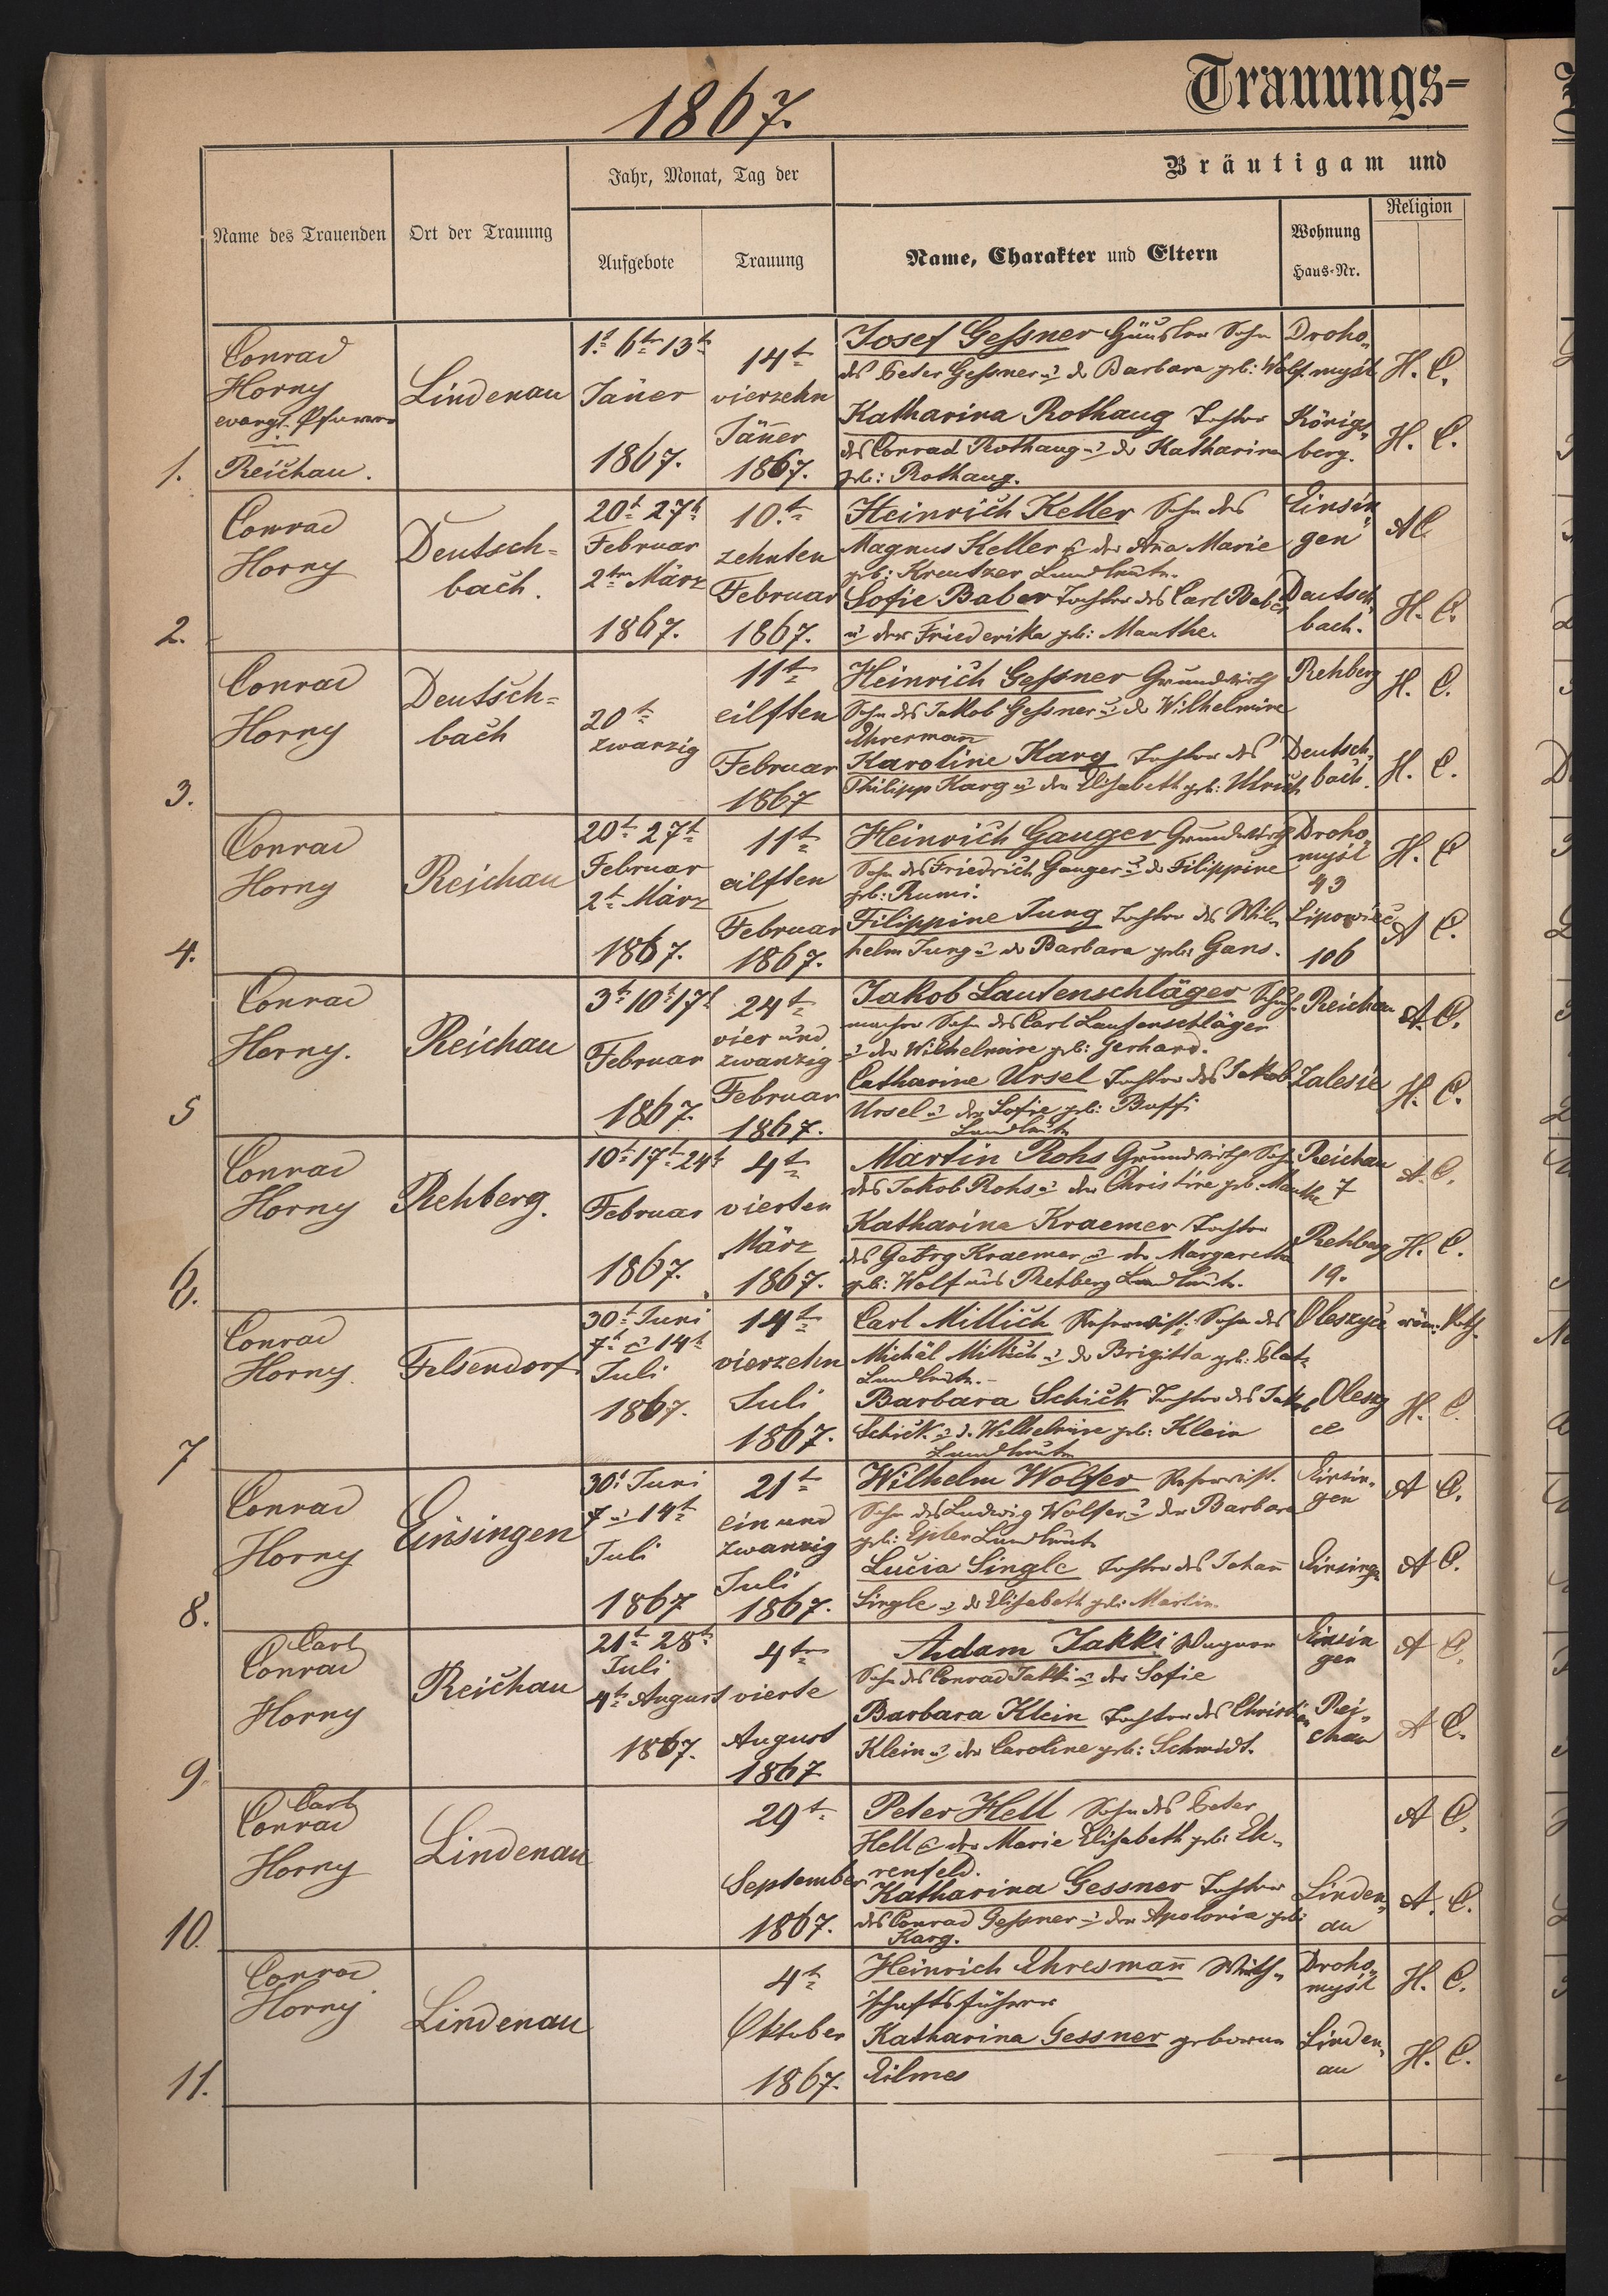 1867.
Trauungs-
Bräutigam und
Name des Trauenden
Ort der Trauung
Jahr, Monat, Tag der
Aufgebote
Trauung
Name, Charakter und Eltern
Wohnung
Haus-Nr.
Religion
1.
Conrad
Horny
evangl. Pfarrer
Reichau.
Lindenau
1t 6ten 13t
Jäner
1867.
14t
vierzehn
Jäner
1867.
Josef Gessner Häusler Sohn
des Peter Gessner u d Barbara geb: Wolf.
Katharina Rothaug Tochter
des Conrad Rothaug u der Katharina
geb: Rothaug.
Droho„
myśl
Königs„
berg.
H. C.
H. C.
2.
Conrad
Horny
Deutsch=
bach.
20t 27t
Februar
2ten März
1867.
10.t
zehnten
Februar
1867.
Heinrich Keller Sohn des
Magnus Keller u der Ana Marie
geb: Kreutzer Landleute.
Sofie Baber Tochter des Carl Baber
u der Friederika geb: Manthe.
Einsin„
gen
Deutsch„
bach.
A C
H. C.
3.
Conrad
Horny
Deutsch=
bach
20t
zwanzig
11t
eilften
Februar
1867
Heinrich Gessner Grundwirth
Sohn des Jakob Gessner u d Wilhelmine
Ehresman
Karoline Karg Tochter des
Philipp Karg u der Elisabeth geb: Ulrich
Rehberg
Deutsch„
bach.
H. C.
H. C.
4.
Conrad
Horny
Reichau
20t 27t
Februar
2t März
1867.
11t
eilften
Februar
1867.
Heinrich Gauger Grundwirth
Sohn des Friedrich Gauger u d Filippine
geb: Rumi.
Filippine Jung Tochter des Wil„
helm Jung u der Barbara geb: Gans.
Droho„
myśl
43
Lipowiec
106
H. C
A C.
5
Conrad
Horny.
Reichau
3t 10t 17t
Februar
1867.
24t
vier und
zwanzig
Februar
1867.
Jakob Lautenschläger Schuh„
macher Sohn des Carl Lautenschläger
u der Wilhelmine geb: Gerhard.
Catharine Ursel Tochter des Jakob
Ursel u der Sofie geb: Buffi
Landleute
Reichau
Zalesie
A. C.
H. C.
6.
Conrad
Horny
Rehberg.
10t 17t 24t
Februar
1867.
4t
vierten
März
1867.
Martin Rohs Grundwirth Sohn
des Jakob Rohs u der Christine geb. Manthe
Katharina Kraemer Tochter
des Georg Kraemer u der Margaretha
geb: Wolf aus Rehberg Landleute.
Reichau
7
Rehberg
19.
A. C.
H. C.
7
Conrad
Horny.
Felsendorf
30t Juni
7t u 14t
Juli
1867.
14t
vierzehn
Juli
1867.
Carl Millich Sohn des
Michäl Millich u d Brigitta geb:
Landleute.
Barbara Schick Tochter des Jakob
Schick u d. Wilhelmine geb: Klein
Landleute
Oleszyce
Oleszy
ce
röm: Kath.
H. C.
8.
Conrad
Horny
Einsingen
30t Juni
7 u 14t
Juli
1867
21t
ein und
zwanzig
Juli
1867.
Wilhelm Wolfer
Sohn des Ludwig Wolfer u der Barbara
geb: Epler Landleute
Lucia Single Tochter des Johan
Single u d Elisabeth geb: Martin
Einsin„
gen
Einsingen
A C.
A C.
9.
Carl
Conrad
Horny
Reichau
21t 28t
Juli
4t August
1867.
4ten
vierte
August
1867
Adam Jakki Wagner
Sohn des Conrad Jakki u der Sofie
Barbara Klein Tochter des Christian
Klein u der Caroline geb: Schmidt.
Einsin
gen
Rei„
chau
A C.
A C.
10.
Carl
Conrad
Horny
Lindenau
29t
September
1867.
Peter Hell Sohn des Peter
Hell u der Marie Elisabeth geb: Eh„
renfeld.
Katharina Gessner Tochter
des Conrad Gessner u der Apolonia geb:
Karg.
Linden„
au
A C.
A. C.
11.
Conrad
Horny
Lindenau
4t
Oktober
1867.
Heinrich Ehresman Wirth„
schaftsführer
Katharina Gessner geborene
Eilmes
Droho„
myśl
Linden„
au
H. C.
H. C.